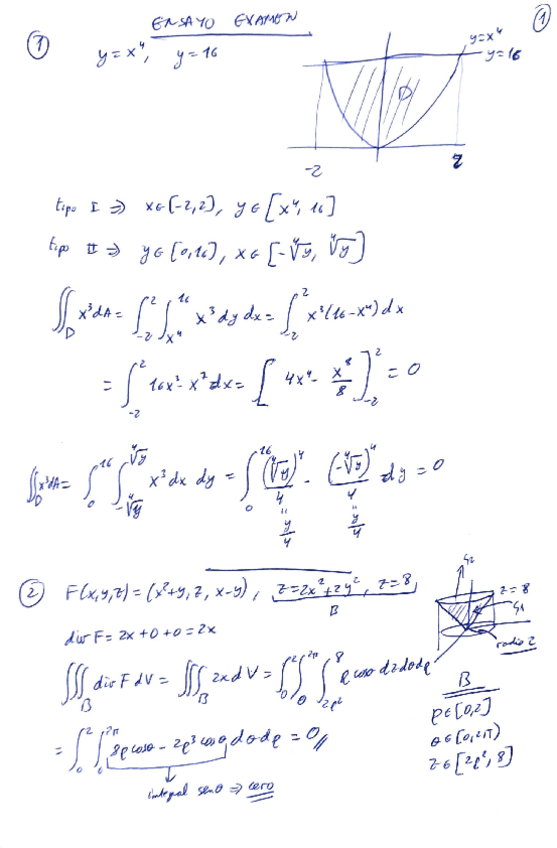 ENSAYO EXAMEN
①
① y = x⁴, y = 16
y=x⁴
y=16
D
-2 2
tipo I ⇒ x∈[-2,2), y∈[x⁴, 16]
tipo II ⇒ y∈[0,16), x∈[-∜y, ∜y]
∬_D x³dA = ∫_{-2}^{2} ∫_{x⁴}^{16} x³ dy dx = ∫_{-2}^{2} x³(16-x⁴) dx
= ∫_{-2}^{2} 16x³ - x⁷ dx = [4x⁴ - x⁸/8]_{-2}^{2} = 0
∬_D x³dA = ∫_0^{16} ∫_{-∜y}^{∜y} x³ dx dy = ∫_0^{16} (∜y)⁴/4 - (-∜y)⁴/4 dy = 0
" "
y/4 y/4
② F(x,y,z) = (x²+y, z, x-y), z=2x²+2y², z=8
B
z=8
radio 2
div F = 2x+0+0 = 2x
∭_B div F dV = ∭_B 2x dV = ∫_0^2 ∫_0^{2π} ∫_{2ρ²}^8 ρ cosθ dz dθ dρ
B
ρ∈[0,2]
θ∈[0,2π)
z∈[2ρ², 8]
= ∫_0^2 ∫_0^{2π} 8ρ cosθ - 2ρ³ cosθ dθ dρ = 0 //
integral senθ ⇒ cero